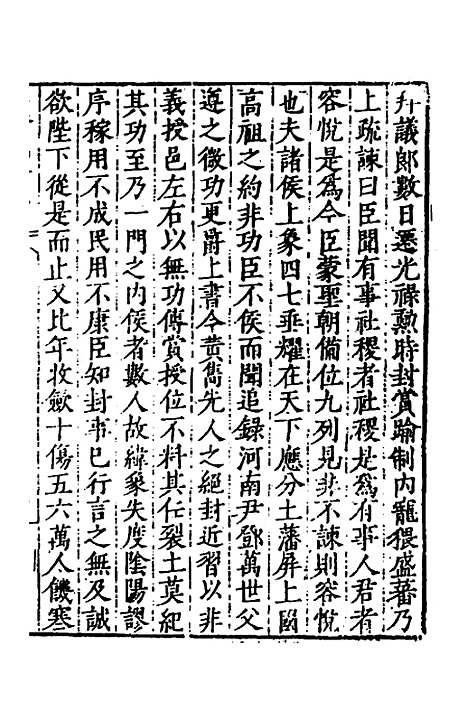 拜議郎數日遷光祿勲時封賞踰制內寵猥盛蕃乃
上疏諫曰臣聞有事社稷者社稷是爲有事人君者
容悅是爲今臣蒙聖朝備位九列見非不諫則容悅
也夫諸侯上象四七垂耀在天下應分土藩屏上國
高祖之約非功臣不侯而聞追錄河南尹鄧萬世父
遵之微功更爵上書令黃雋先人之絕封近習以非
義授邑左右以無功傳賞授位不料其任裂土莫紀
其功至乃一門之內侯者數人故緯象失度陰陽謬
序稼用不成民用不康臣知封事已行言之無及誠
欲陛下從是而止又比年收斂十傷五六萬人饑寒